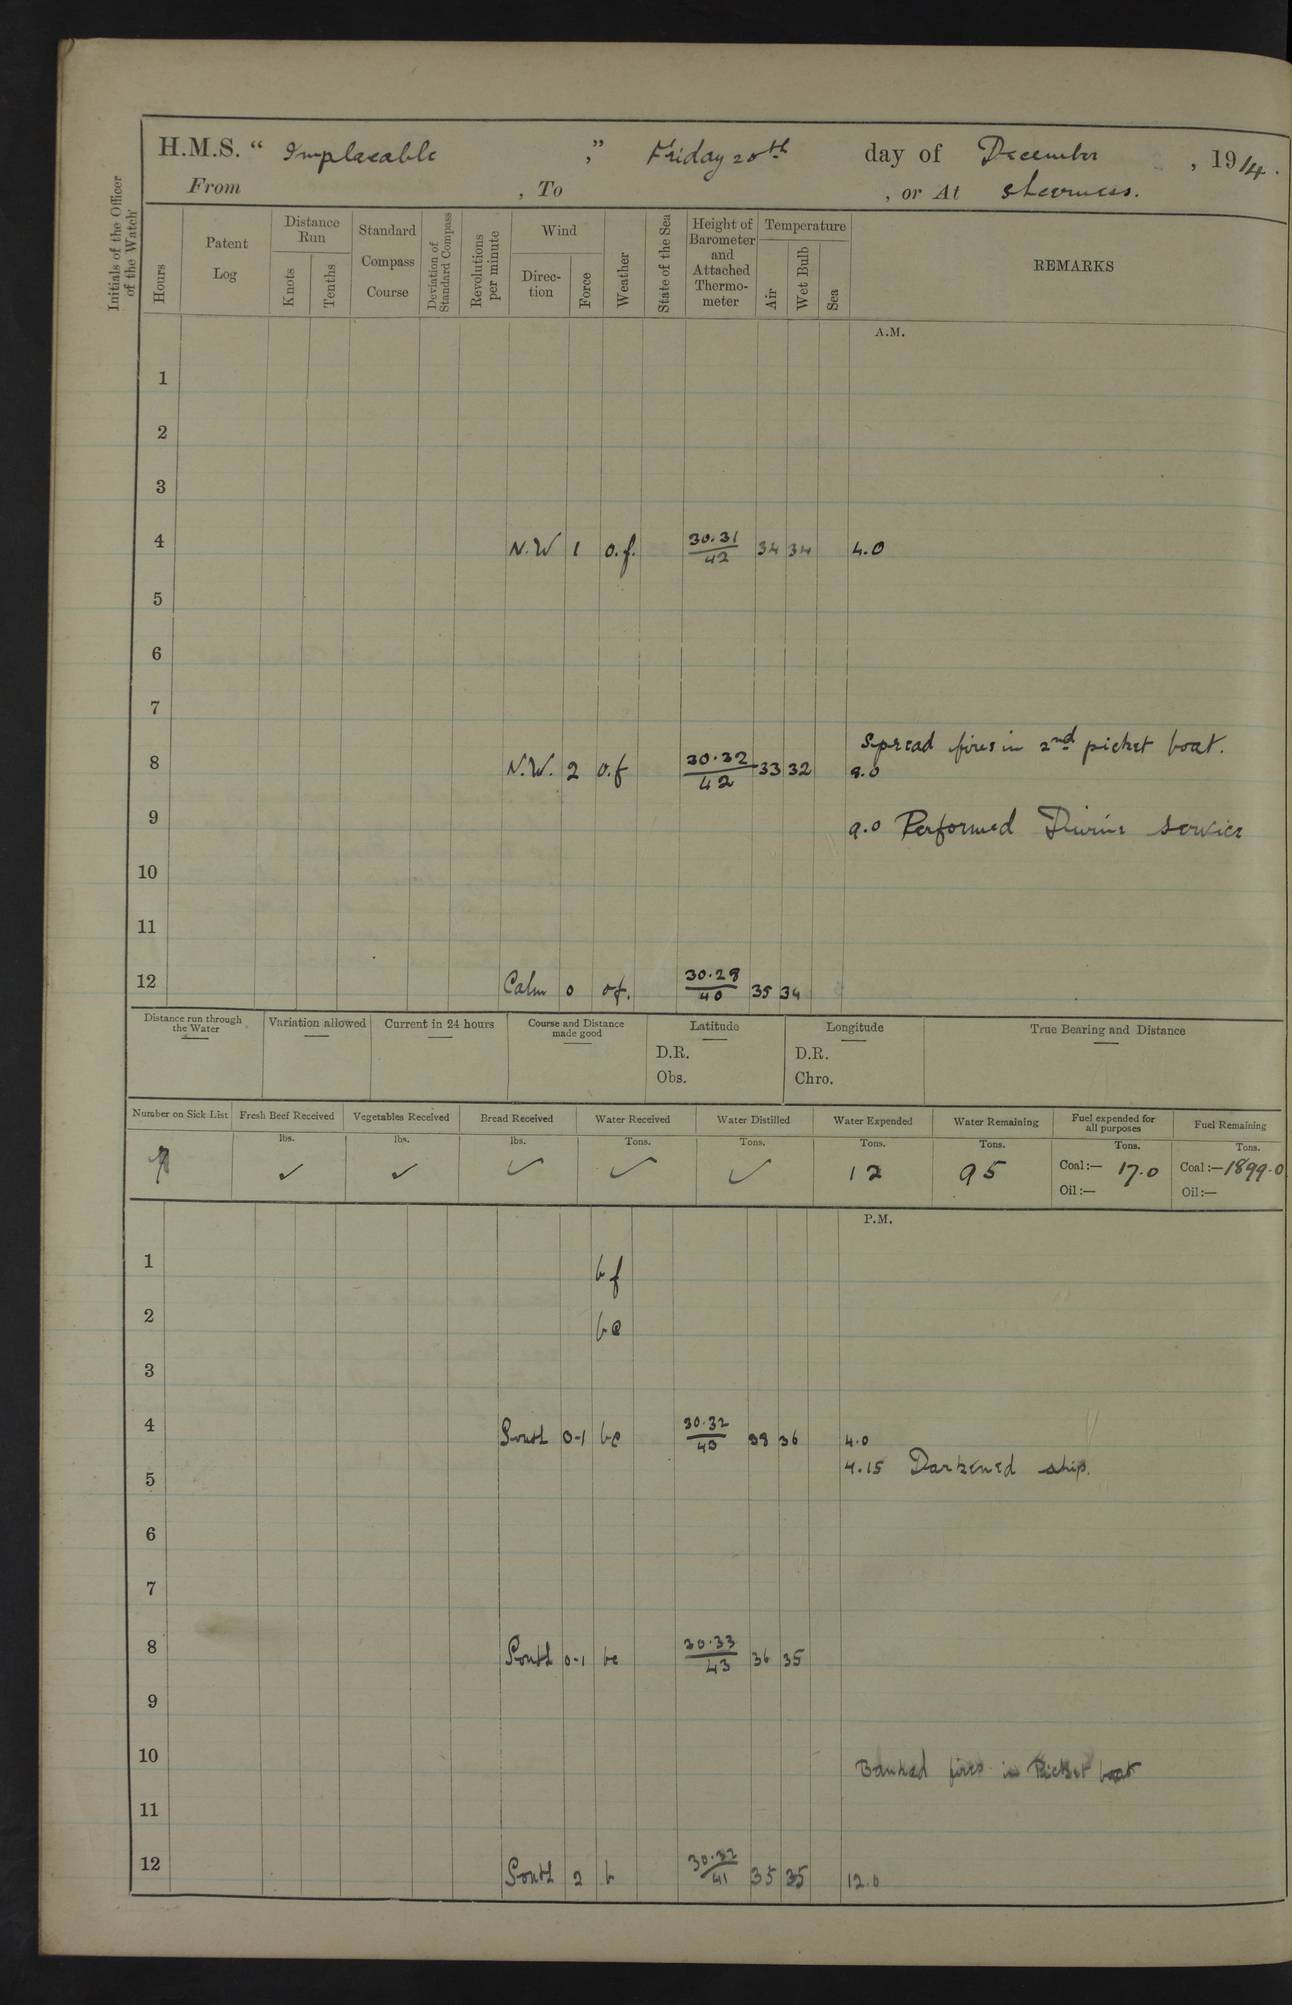 H.M.S. “ Implacable ,” Friday 20th day of December , 1914.
From , To , or At Sheerness.
Initials of the Officer of the Watch
Hours
Patent Log
Distance Run
Knots
Tenths
Standard Compass Course
Deviation of Standard Compass
Revolutions per minute
Wind
Direc-tion
Force
Weather
State of the Sea
Height of Barometer and Attached Thermo-meter
Temperature
Air
Wet Bulb
Sea
REMARKS
A.M.
1
2
3
4 N.W 1 o.f. 30.31/42 34 34 4.0
5
6
7
Spread fires in 2nd picket boat.
8 N.W. 2 o.f 30.32/42 33 32 8.0
9 9.0 Performed Divine Service
10
11
12 Calm 0 o.f. 30.28/40 35 34
Distance run through the Water
Variation allowed
Current in 24 hours
Course and Distance made good
Latitude
D.R.
Obs.
Longitude
D.R.
Chro.
True Bearing and Distance
Number on Sick List
Fresh Beef Received
Vegetables Received
Bread Received
Water Received
Water Distilled
Water Expended
Water Remaining
Fuel expended for all purposes
Fuel Remaining
lbs. lbs. lbs. Tons. Tons. Tons. Tons. Tons. Tons.
✓ ✓ ✓ ✓ ✓ 12 95 Coal:— 17.0 Coal:— 1899.0
Oil:— Oil:—
P.M.
1 b f
2 bc
3
4 South 0-1 bc 30.32/43 38 36 4.0
4.15 Darkened ship.
5
6
7
8 South 0-1 bc 30.33/43 36 35
9
10 Banked fires in Picket boat
11
12 South 2 b 30.32/41 35 35 12.0